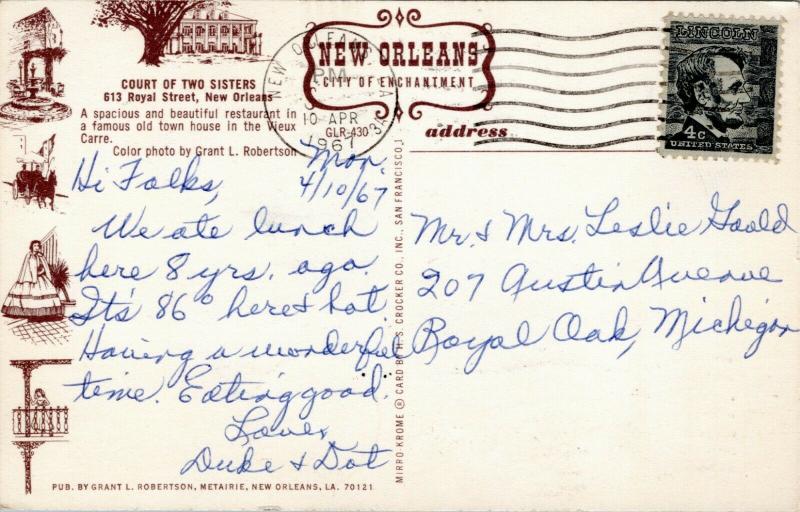 COURT OF TWO SISTERS
613 Royal Street, New Orleans
A spacious and beautiful restaurant in
a famous old town house in the Vieux
Carre.
Color photo by Grant L. Robertson
NEW ORLEANS
CITY OF ENCHANTMENT
GLR-430
NEW ORLEANS, LA
PM
10 APR
1967
address
LINCOLN
4c
UNITED STATES
Mon.
4/10/67
Hi Folks,
We ate lunch
here 8 yrs. ago.
It's 86° here & hot.
Having a wonderful
time. Eating good.
Love,
Duke & Dot
Mr. & Mrs. Leslie Goold
207 Austin Avenue
Royal Oak, Michigan
MIRRO-KROME ® CARD BY H. S. CROCKER CO., INC., SAN FRANCISCO,
PUB. BY GRANT L. ROBERTSON, METAIRIE, NEW ORLEANS, LA. 70121